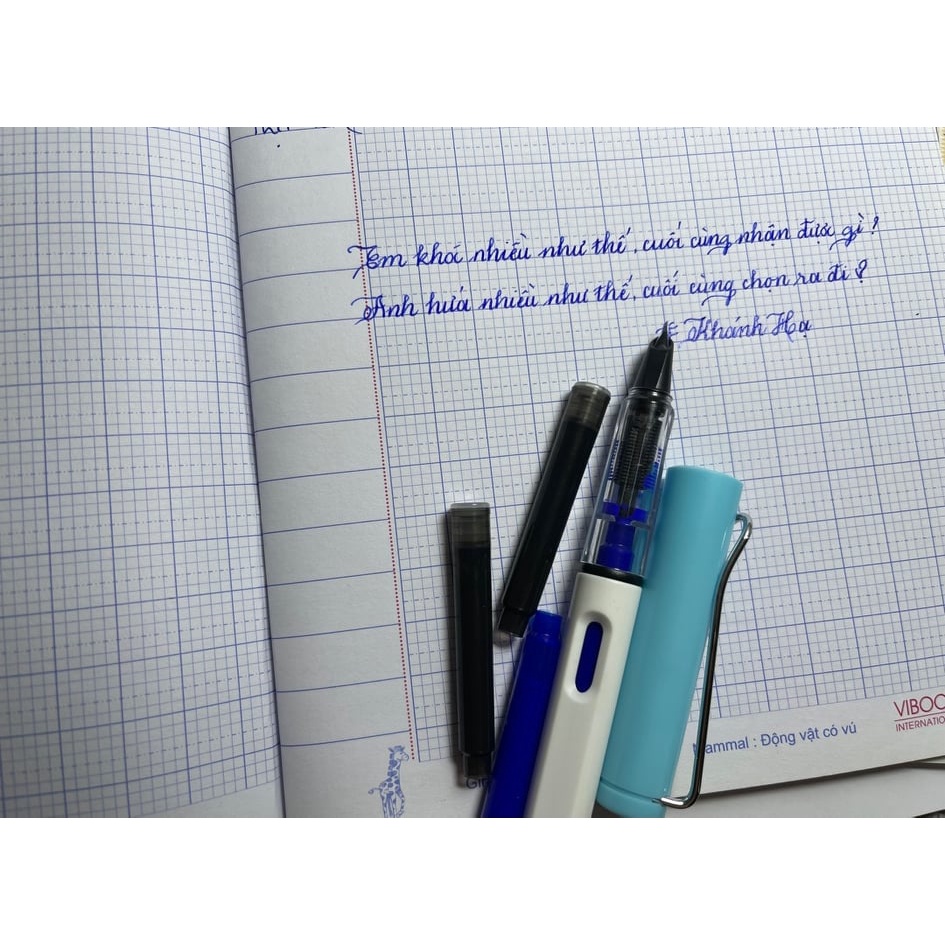 Em khóc nhiều như thế, cuối cùng nhận được gì?
Anh hứa nhiều như thế, cuối cùng chọn ra đi?
Khánh Hạ
VIBOO
INTERNATIO
Mammal : Động vật có vú
Gi